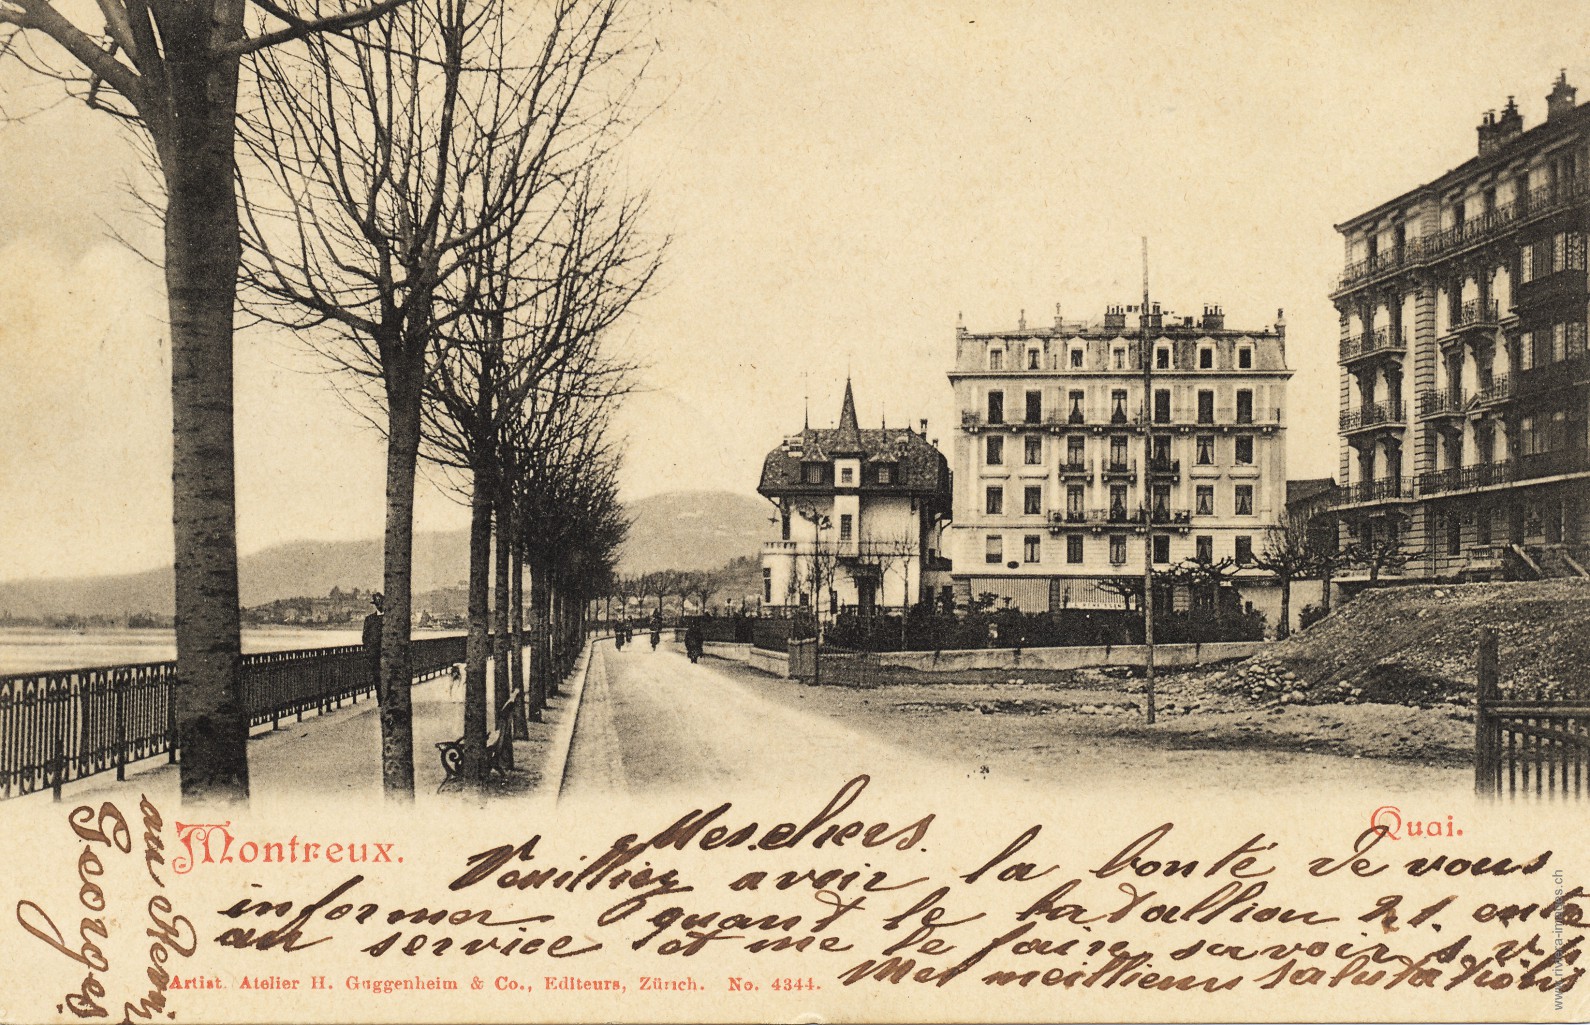 Montreux.
Quai.
Mes chers.
Veuilliez avoir la bonté de vous
informer quand le batallion 21. entre
au service et me le faire savoir s. v. p.
Mes meillieurs salutations
Georges
au
Artist. Atelier H. Guggenheim & Co., Editeurs, Zürich. No. 4344.
www.riviera-images.ch